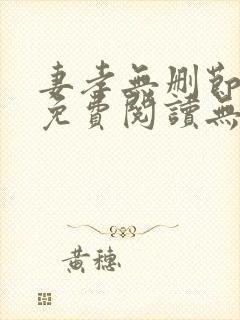 妻孝無刪節
免費閱讀無
黃穗